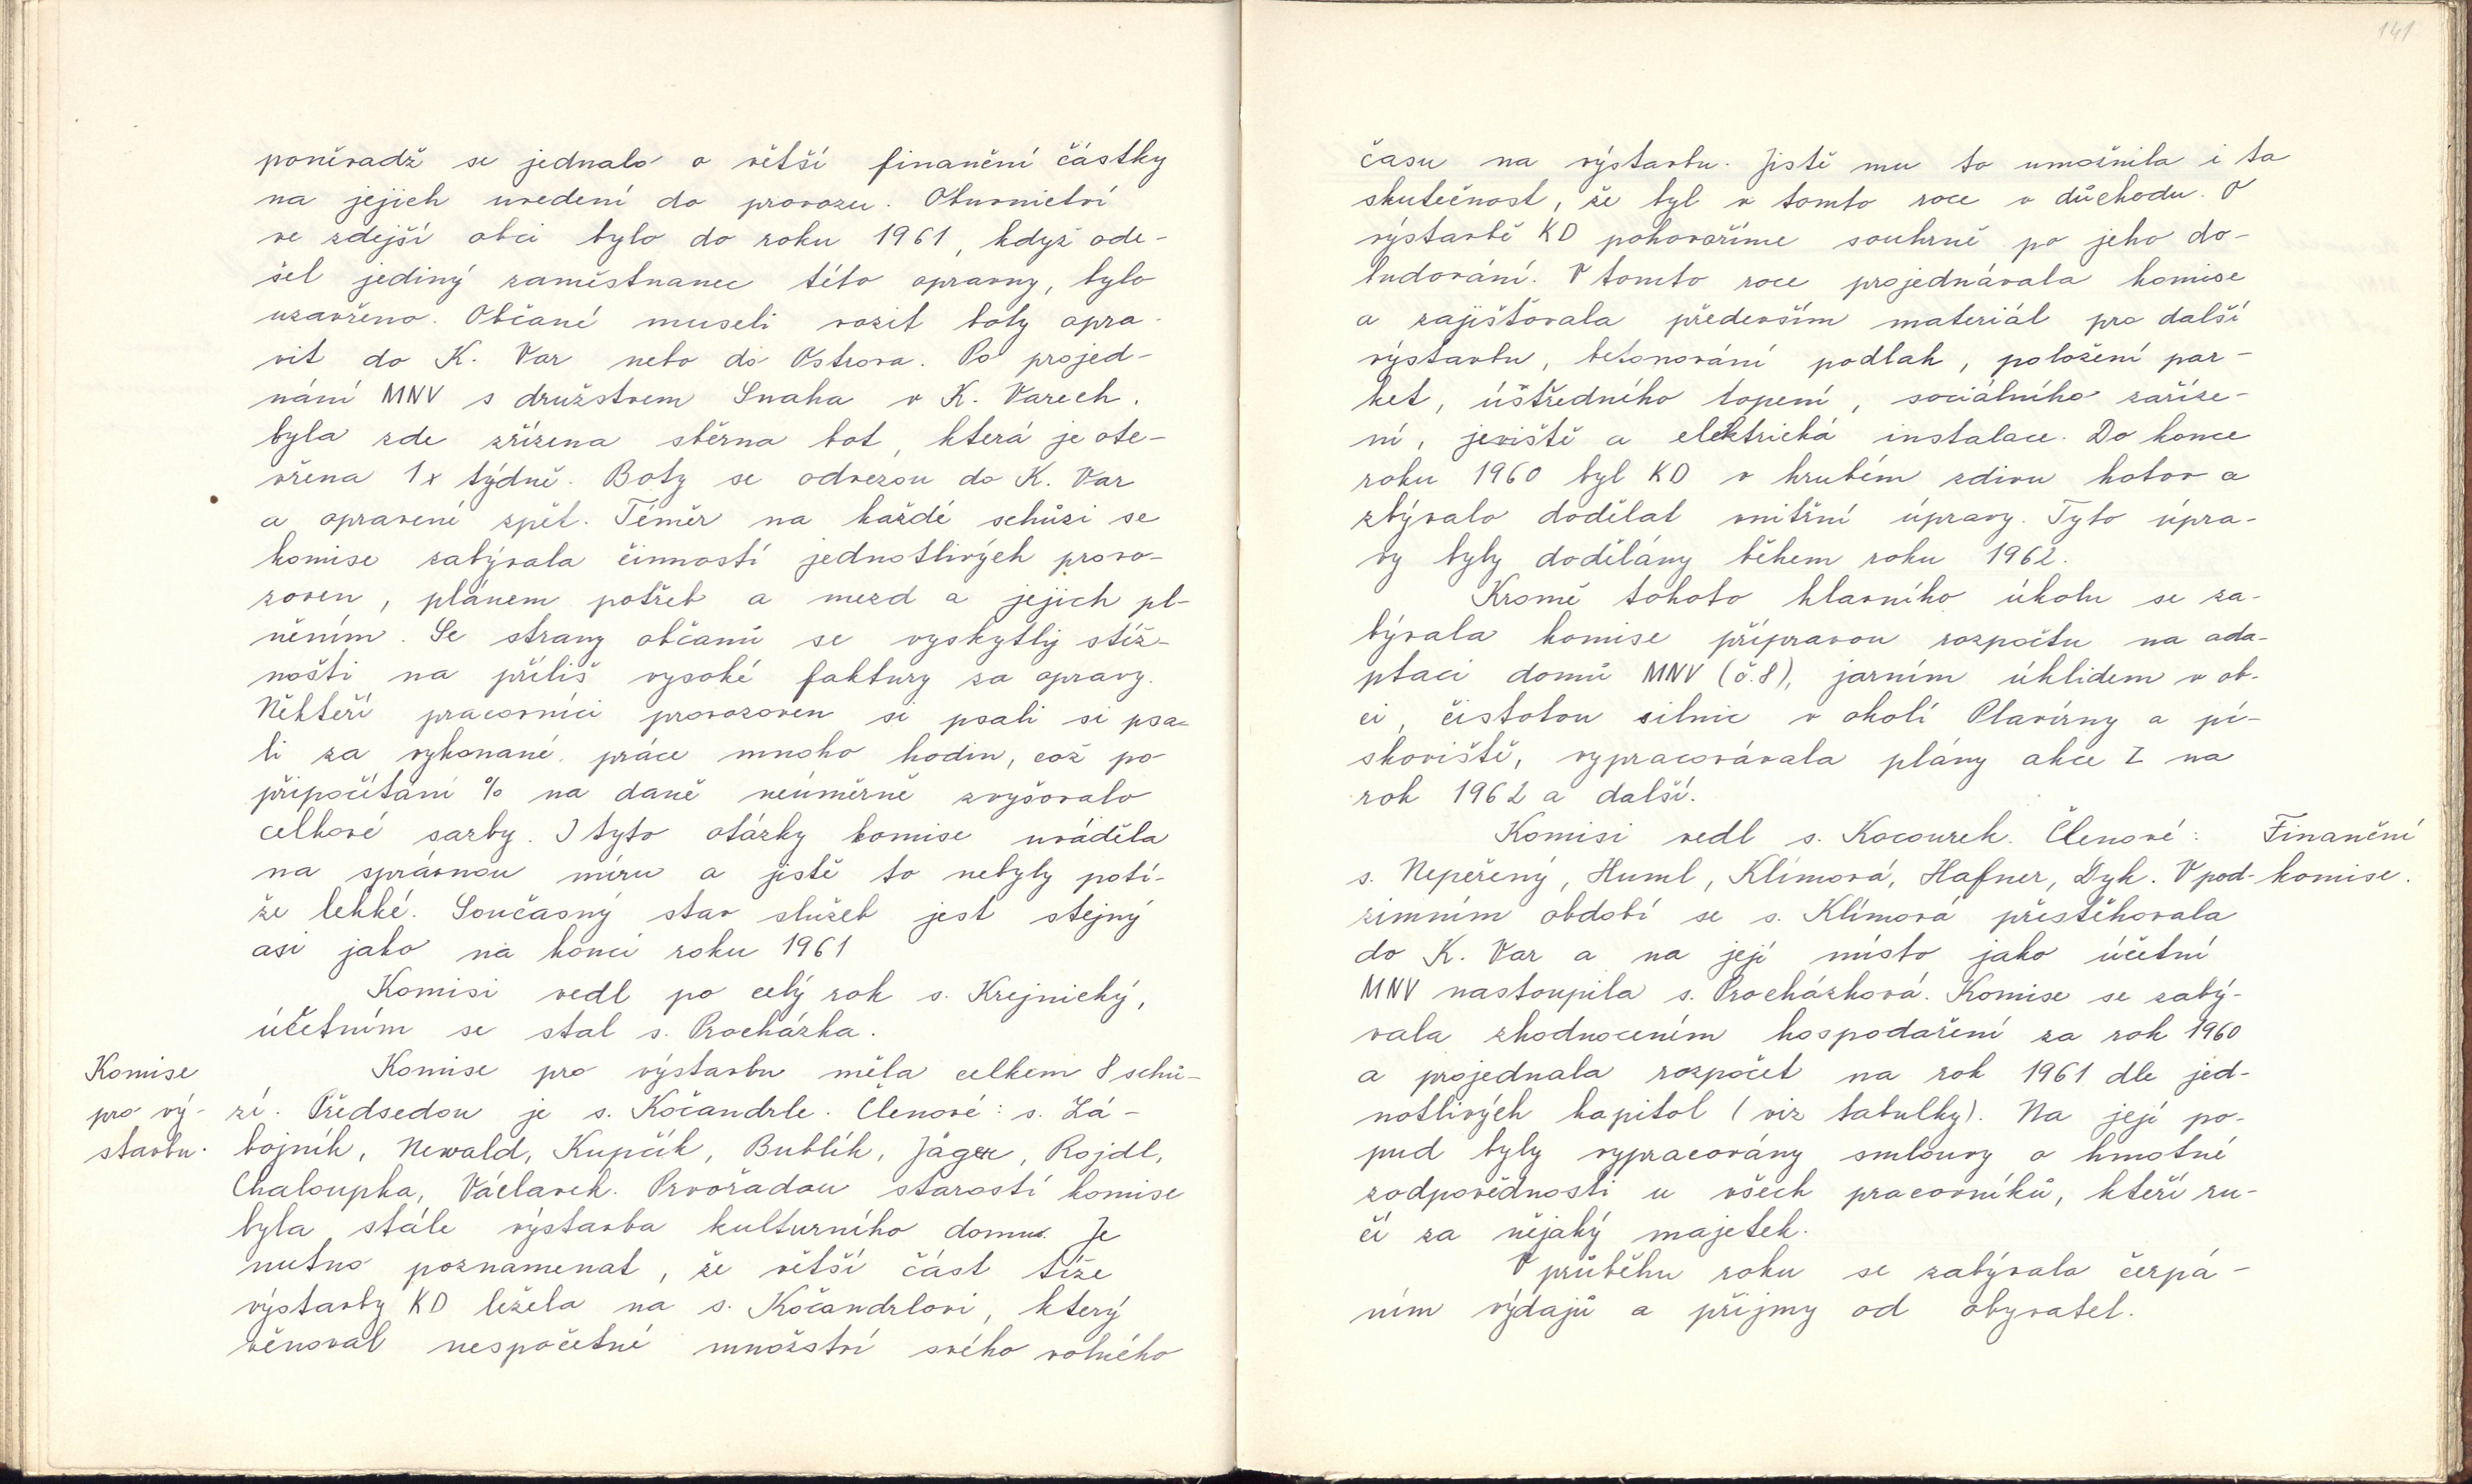 poněvadž se jednalo o větší finanění částky
na jejich uvedení do provozu. Obuvnictví
ve zdejší obci bylo do roku 1961, když ode-
šel jediný zaměstnanec této opravny, bylo
uzavřeno. Občané museli vozit boty opra-
vit do K. Var nebo do Ostrova. Po projed-
nání MNV s družstvem Snaha v K. Varech.
byla zde zřízena sběrna bot, která je ote-
vřena 1x týdně. Boty se odvezou do K. Var
a opravené zpět. Téměr na každé schůzi se
komise zabývala činností jednotlivých provo-
zoven, plánem potřeb a mezd a jejich pl-
něním. Se strany občanů se vyskytly stíž-
nošti na příliš vysoké faktury za opravy.
Někteří pracovníci provozoven si psali si psa-
li za vykonané práce mnoho hodin, což po
připočítání % na daně neúměrně zvyšovalo
celkové sazby. I tyto otázky komise uváděla
na správnou míru a jistě to nebyly potí-
že lehké. Současný stav služeb jest stejný
asi jako na konci roku 1961
Komisi vedl po celý rok s. Krejnický,
účetním se stal s. Procházka.
Komise pro vý-
stavbu.
Komise pro výstavbu měla celkem 8 schů-
zí. Předsedou je s. Kočandrle. Členové: s. Zá-
bojník, Newald, Kupčík, Bublík, Jäger, Rojdl,
Chaloupka, Václavek. Prvořadou starostí komise
byla stále výstavba kulturního domu. Je
nutno poznamenat, že větší část tíže
výstavby KD ležela na s. Kočandrlovi, který
věnoval nespočetné množství svého volného
141
času na výstavbu. Jistě mu to umožnila i ta
skutečnost, že byl v tomto roce v důchodu. O
výstavbě KD pohovoříme souhrně po jeho do-
budování. V tomto roce projednávala komise
a zajišťovala především materiál pro další
výstavbu, betonování podlah, položení par-
ket, úštředního topení, sociálního zaříze-
ní, jeviště a elektrická instalace. Do konce
roku 1960 byl KD v hrubém zdivu hotov a
zbývalo dodělat vnitřní úpravy. Tyto úpra-
vy byly dodělány během roku 1962.
Kromě tohoto hlavního úkolu se za-
bývala komise přípravou rozpočtu na ada-
ptaci domů MNV (č.8), jarním úklidem v ob-
ci, čistotou silnic v okolí Plavírny a pí-
skoviště, vypracovávala plány akce Z na
rok 1962 a další.
Finanční
komise.
Komisi vedl s. Kocourek. Členové:
s. Nepeřený, Huml, Klímová, Hafner, Dyk. V pod-
zimním období se s. Klímová přestěhovala
do K. Var a na její místo jako účetní
MNV nastoupila s. Procházková. Komise se zabý-
vala zhodnocením hospodaření za rok 1960
a projednala rozpočet na rok 1961 dle jed-
notlivých kapitol (viz tabulky). Na její po-
pud byly vypracovány smlouvy o hmotné
zodpovědnosti u všech pracovníků, kteří ru-
čí za nějaký majetek.
V průběhu roku se zabývala čerpá-
ním výdajů a příjmy od obyvatel.